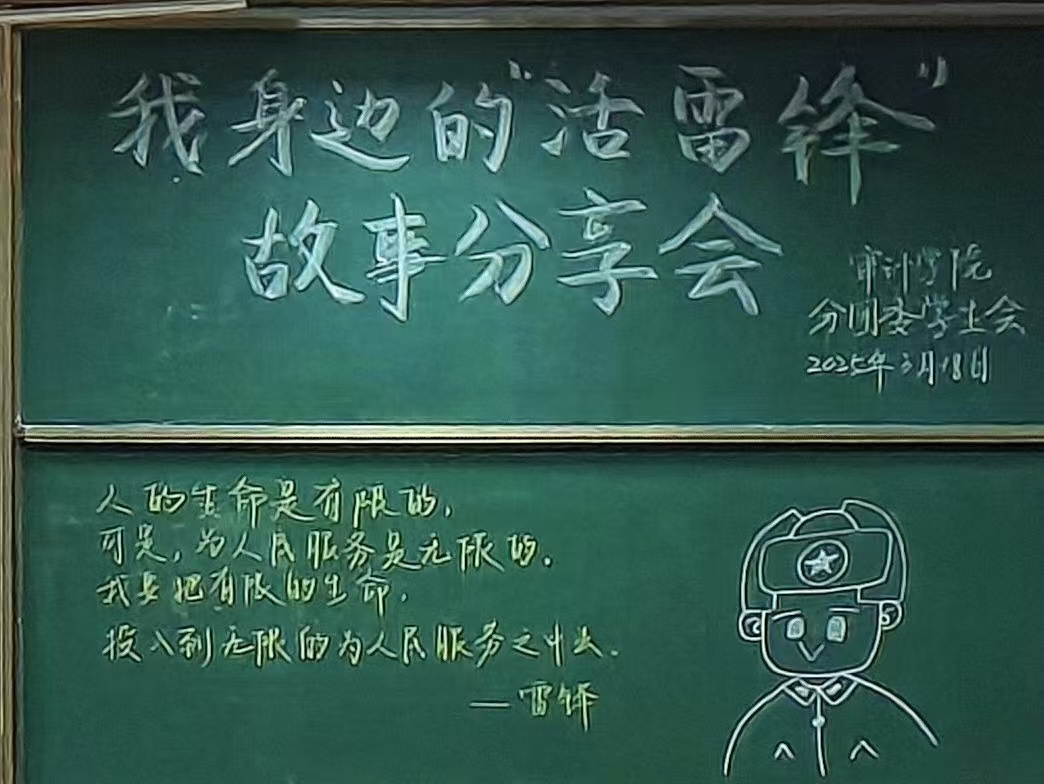 我身边的“活雷锋”
故事分享会
审计学院
分团委学生会
2025年3月18日
人的生命是有限的,
可是,为人民服务是无限的.
我要把有限的生命,
投入到无限的为人民服务之中去.
—雷锋